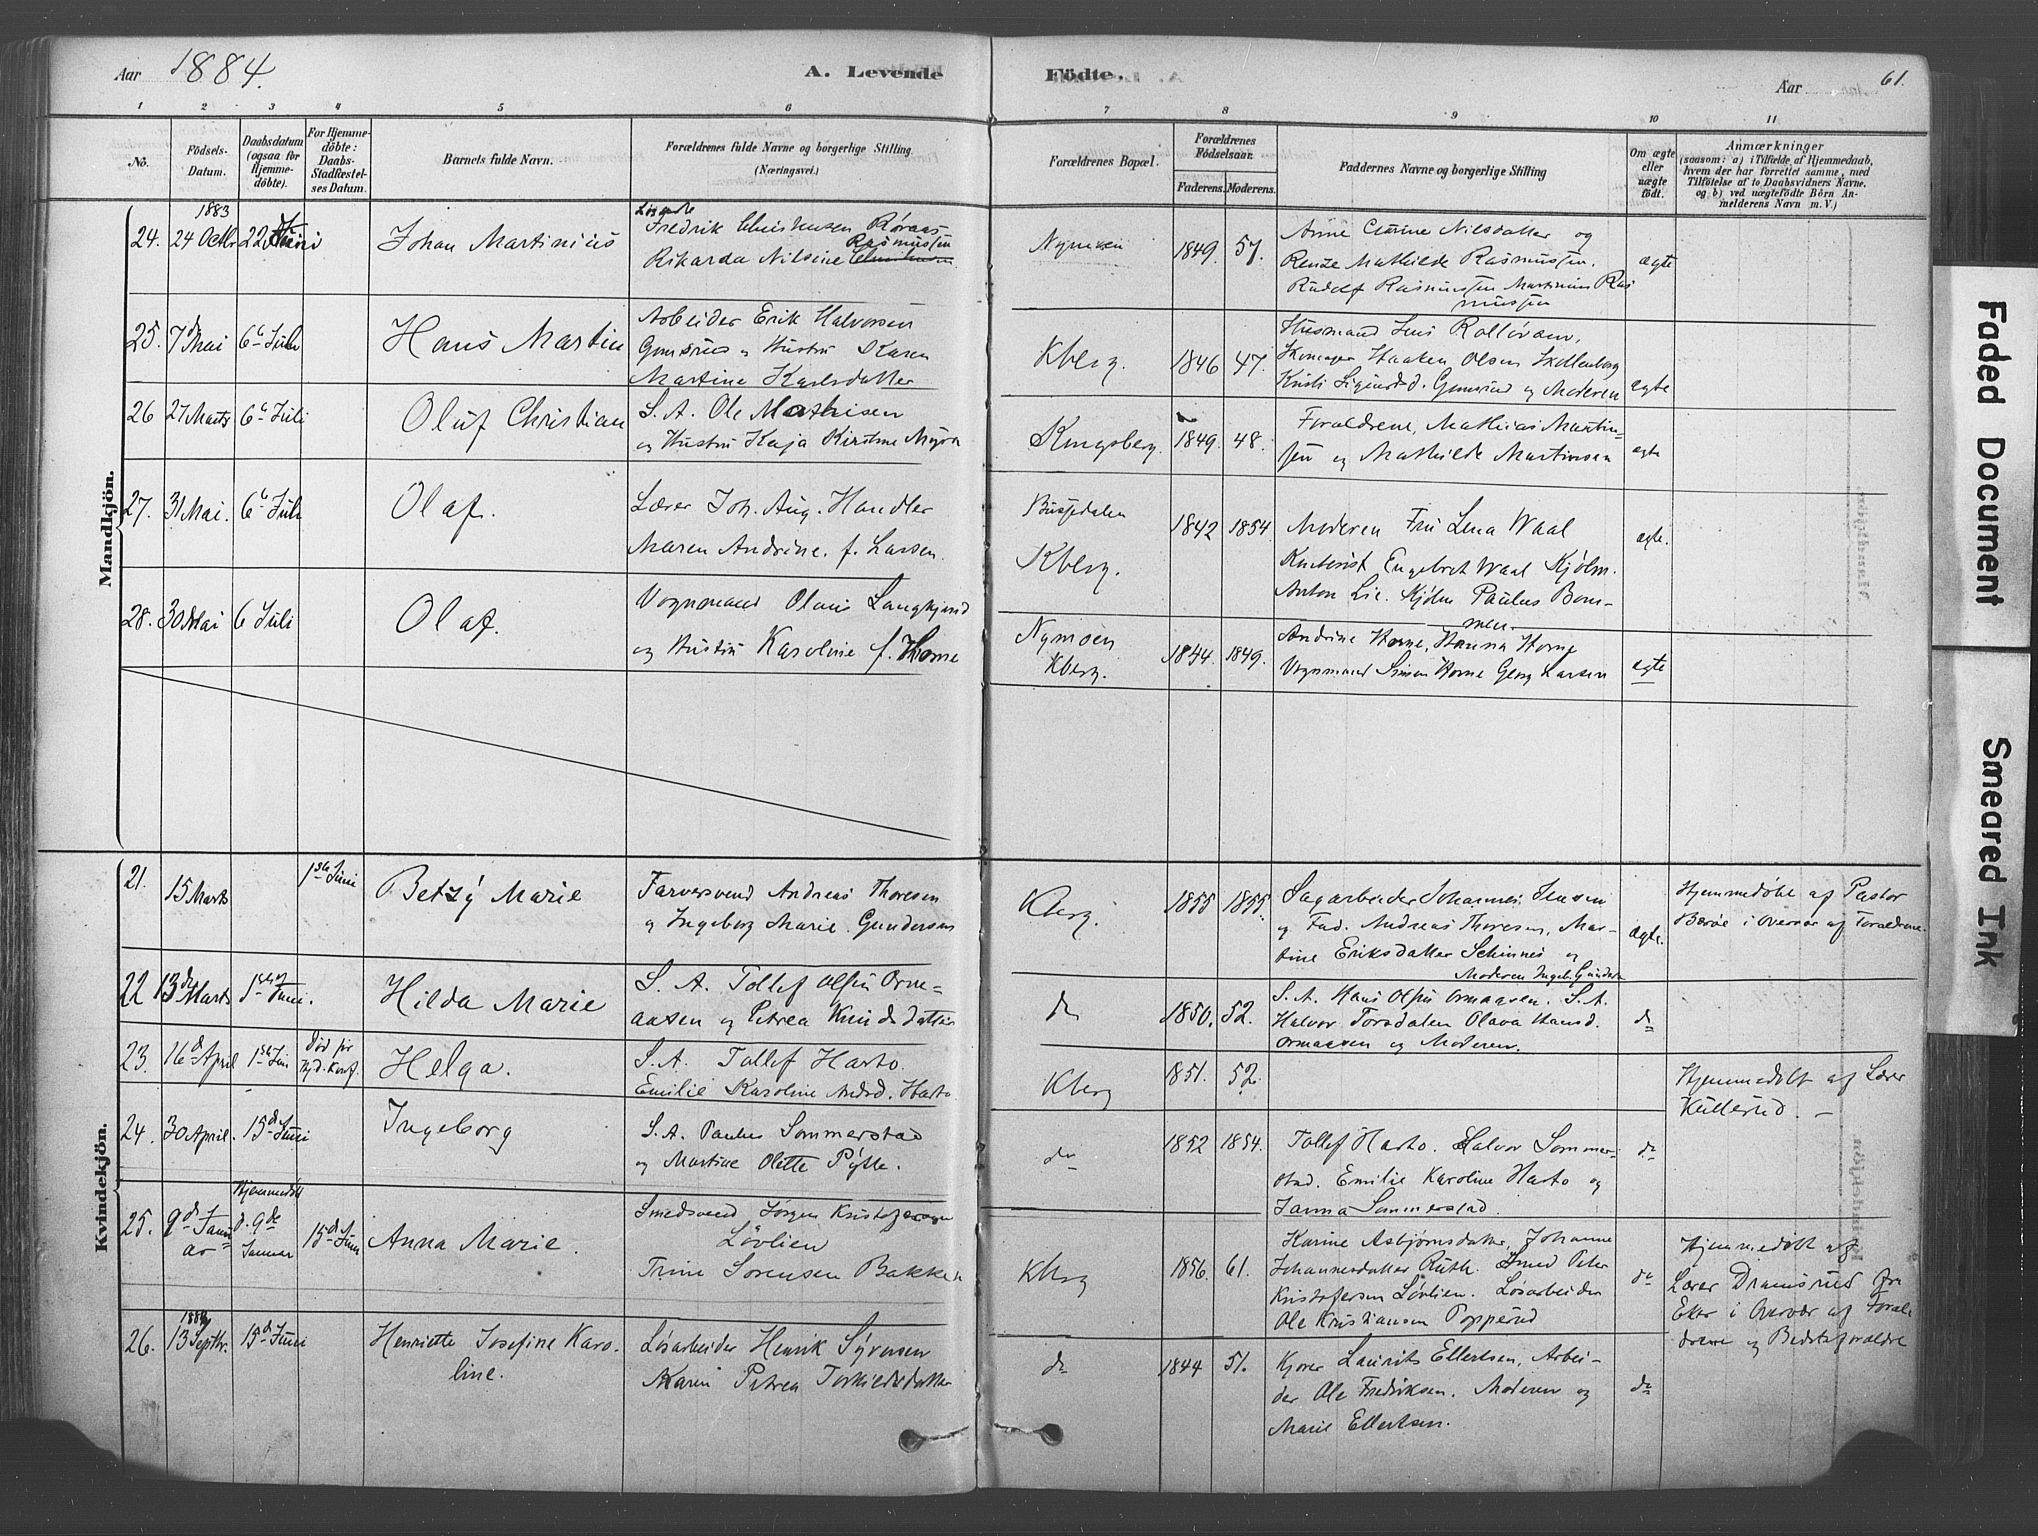 Aar 1884.
A. Levende
Födte.
Aar
61.
1 2 3 4 5 6 7 8 9 10 11
No.
Födsels-
Datum.
Daabsdatum
(ogsaa for
Hjemme-
döbte).
For Hjemme-
döbte:
Daabs-
Stadfæstel-
ses Datum.
Barnets fulde Navn.
Forældrenes fulde Navne og borgerlige Stilling.
(Næringsvei.)
Forældrenes Bopæl.
Forældrenes
Födselsaar.
Faderens. Moderens.
Faddernes Navne og borgerlige Stilling
Om ægte
eller
uægte
födt.
Anmærkninger
(saasom: a) i Tilfælde af Hjemmedaab,
hvem der har forrettet samme, med
Tilföielse af to Daabsvidners Navne.
og b) ved uægtefödte Börn An-
melderens Navn m. V.)
Mandkjön.
24.
1883
24 Octbr
22
Johan Martinius
Fredrik Røraas
Rasmussen
Rikarda Nilsine
Nymoen
1849. 57.
Anne Nilsdatter og
Mathilde Rasmussen.
Rudolf Rasmussen Martinius Ras
mussen
ægte
25. 7 Mai 6 Juli
Hans Martin
Arbeider Erik Halvorsen
og Hustru Karen
Martine Karlsdatter
Kberg.
1846 47.
Husmand
Haaken Olsen
og Moderen
ægte
26 27 Marts 6 Juli
Oluf Christian
S. A. Ole Mathisen
og Hustru Kaja Kirstine Myra
Kongsberg.
1849. 48.
Forældrene, Mathias Martin-
sen og Mathilde Martinsen
ægte
27. 31 Mai. 6 Juli
Olaf.
Lærer Joh. Aug. Handler
Maren Andrine. f. Larsen.
Kberg.
1842 1854.
Moderen Fru Lena Waal
Engebret Waal Kjøbm.
Anton Lie. Kjøbm Paulus Bom-
men.
ægte.
28. 30 Mai 6 Juli
Olaf.
Vognmand Olaus
og Hustru Karoline f. Horne
Nymoen
Kberg.
1844. 1849.
Andrine Horne, Hanna Horne
Vognmand Simon Horne Georg Larsen
ægte
Kvindekjön.
21. 15 Marts 1ste Juni
Betzy Marie
Farversvend Andreas Thoresen
og Ingeborg Marie. Gundersen
Kberg.
1855 1855.
Sagarbeider Johannes Jensen
og Fad. Andreas Thoresen, Mar-
tine Eriksdatter Schinnes og
Moderen Ingeb. Gunders
ægte.
Hjemmedøbt af Pastor
Barøe i Overvær af Forældrene
22 13de Marts 1ste Juni.
Hilda Marie
S. A. Tollef Olsen Orme-
aasen og Petrea Knudsdatter
do
1850. 52.
S. A. Hans Olsen Ormaasen. S. A.
Halvor Torsdalen Olava Hansd.
Ormaasen og Moderen.
do
23. 16d April 1ste Juni
Død før
Helga.
S. A. Tollef Hasto.
Emilie Karoline Andsd. Hasto
Kberg
1851. 52.
Hjemmedøbt af Lærer
Kullerud. —
24. 30 April. 15d Juni
Ingeborg
S. A. Paulus Sommerstad
og Martine Olette Pytte.
do
1852 1854.
Tollef Hasto. Halvor Sommer-
stad. Emilie Karoline Hasto og
Janna Sommerstad.
do
25. 9d Janu
ar
Hjemmedøbt
d. 9de
Januar
15d Juni
Anna Marie.
Smedsvend Jørgen Kristofersen
Løvlien
Trine Sørensen Bakken
Kberg
1856. 61.
Karine Asbjørnsdatter, Johanne
Johannesdatter Ruth. Smed Peter
Kristofersen Løvlien. Løsarbeider
Ole Kristiansen Popperud
do
Hjemmedøbt af
Lærer Dramsrud fra
Eker i Overvær af Foræl
drene og Bedsteforældre
26. 13 Septbr. 15d Juni
Henriette Josefine Karo-
line.
Løsarbeider Henrik Syversen
Karen Petrea Torkildsdatter
do
1844 51.
Kjører Laurits Ellertsen, Arbei-
der Ole Fredriksen. Moderen og
Marie Ellertsen.
do
Faded Document
Smeared Ink